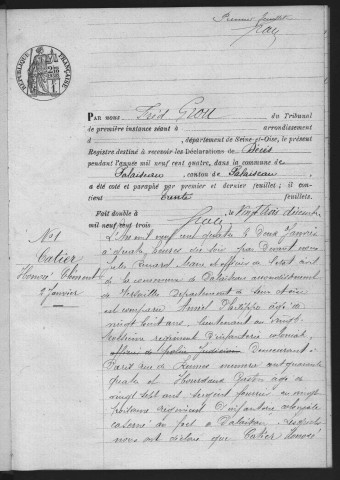 Premier feuillet
RÉPUBLIQUE FRANÇAISE
PAR NOUS
du Tribunal
de première instance séant à arrondissement
d , département de Seine-et-Oise, le présent
Registre destiné à recevoir les Déclarations de Décès
pendant l'année mil neuf cent quatre, dans la commune de
Palaiseau, canton de Palaiseau,
a été coté et paraphé par premier et dernier feuillet; il con-
tient trente feuillets.
Fait double à , le vingt trois décembre
mil neuf cent trois
N° 1
L'An mil neuf cent quatre le deux Janvier
Calier
à quatre heures du soir par devant nous
Honoré Clément
Maire et officier de l'état civil
2 Janvier
de la commune de Palaiseau arrondissement
de Versailles département de Seine et Oise
est comparu Philippe âgé de
vingt huit ans, lieutenant au vingt
troisième régiment d'infanterie coloniale
officier de Police Judiciaire demeurant à
Paris rue de Rennes numéro cent quarante
quatre et Gaston âgé de
vingt sept ans, sergent fourrier au vingt
troisième régiment d'infanterie coloniale
caserné au fort de Palaiseau, lesquels
nous ont déclaré que Calier Honoré